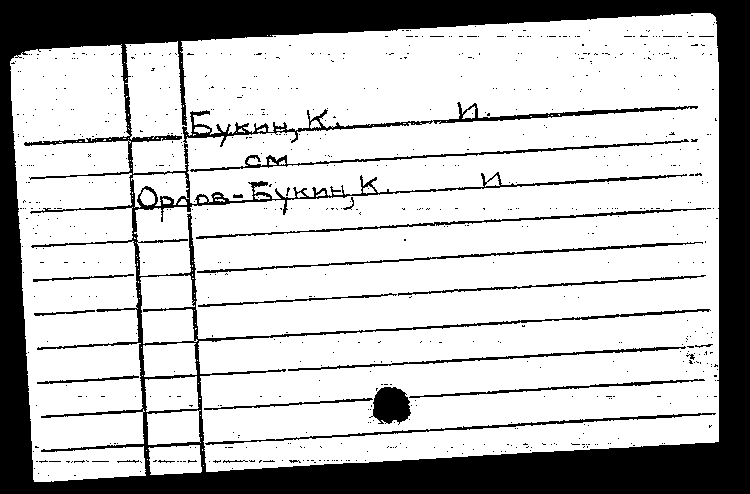 Букин, К. И.
см
Орлов-Букин, К. И.